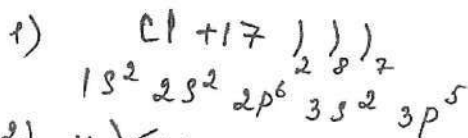 1) Cl +17 ) ) ) 2 8 7
1s² 2s² 2p⁶ 3s² 3p⁵
2)